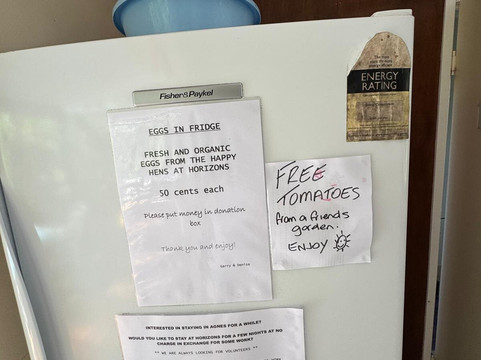 Fisher&Paykel
ENERGY
RATING
EGGS IN FRIDGE
FRESH AND ORGANIC
EGGS FROM THE HAPPY
HENS AT HORIZONS
50 cents each
Please put money in donation
box
Thank you and enjoy!
FREE
TOMATOES
from a friends
garden.
ENJOY
INTERESTED IN STAYING IN AGNES FOR A WHILE?
WOULD YOU LIKE TO STAY AT HORIZONS FOR A FEW NIGHTS AT NO
CHARGE IN EXCHANGE FOR SOME WORK?
** WE ARE ALWAYS LOOKING FOR VOLUNTEERS **